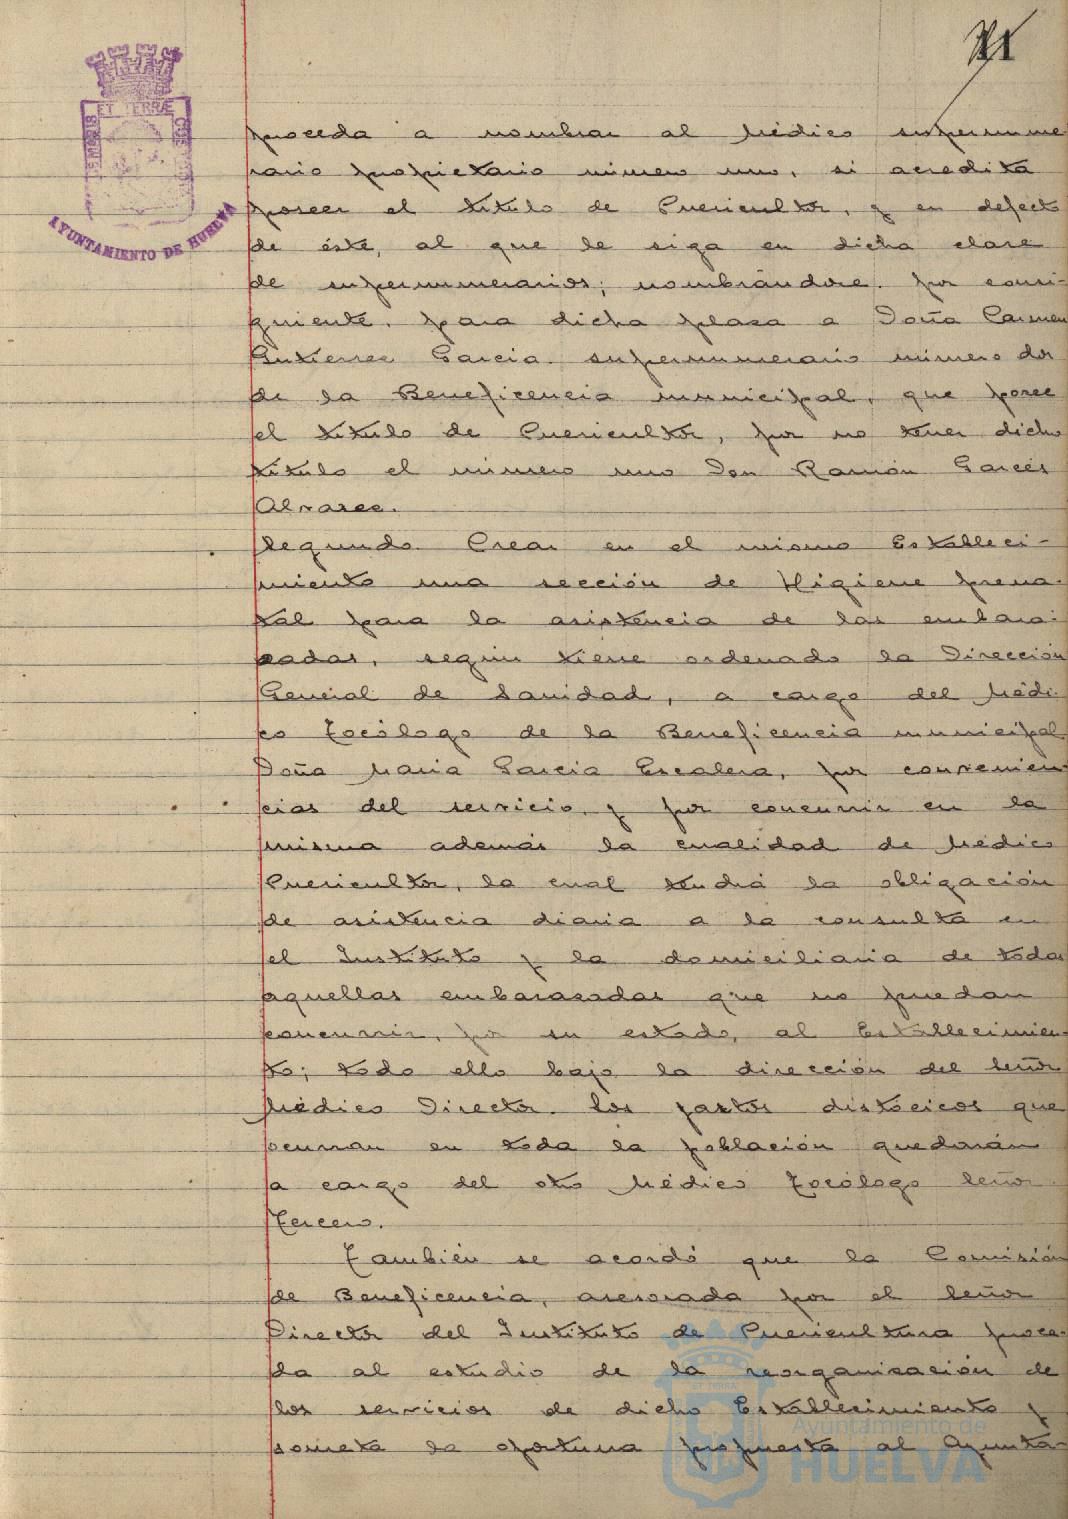 11
ET TERRÆ
AYUNTAMIENTO DE HUELVA
proceda a nombrar al Médico supernume
rario propietario número uno, si acredita
poseer el título de Puericultor, y en defecto
de éste, al que le siga en dicha clase
de supernumerarios; nombrándose. por consi-
guiente, para dicha plaza a Doña Carmen
Gutierrez Garcia. supernumerario número dos
de la Beneficencia municipal, que posee
el título de Puericultor, por no tener dicho
título el número uno Don Ramón Garcés
Alvarez.
Segundo. Crear en el mismo Estableci-
miento una sección de Higiene prena-
tal para la asistencia de las embara-
zadas, según tiene ordenado la Dirección
General de Sanidad, a cargo del Médi-
co Tocólogo de la Beneficencia municipal
Doña Maria Garcia Escalera, por convenien-
cias del servicio, y por concurrir en la
misma además la cualidad de Médico
Puericultor, la cual tendrá la obligación
de asistencia diaria a la consulta en
el Instituto y la domiciliaria de todas
aquellas embarazadas que no puedan
concurrir, por su estado, al Establecimien-
to; todo ello bajo la dirección del Señor
Médico Director. Los partos distócicos que
ocurran en toda la población quedarán
a cargo del otro Médico Tocólogo Señor
Tercero.
También se acordó que la Comisión
de Beneficencia, asesorada por el Señor
Director del Instituto de Puericultura proce-
da al estudio de la reorganización de
los servicios de dicho Establecimiento y
someta la oportuna propuesta al Ayunta-
Ayuntamiento de
HUELVA